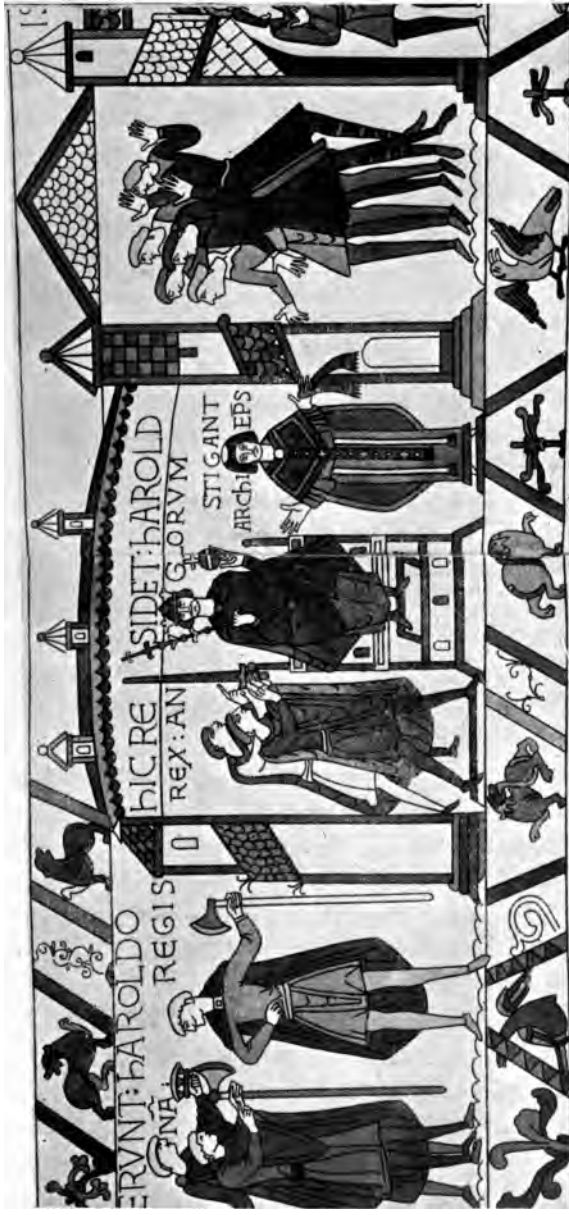 ERVNT: hAROLDO
NÃ: REGIS
hIC RE SIDET: hAROLD
REX: AN GLORVM
STIGANT
ARChI EPS
IS